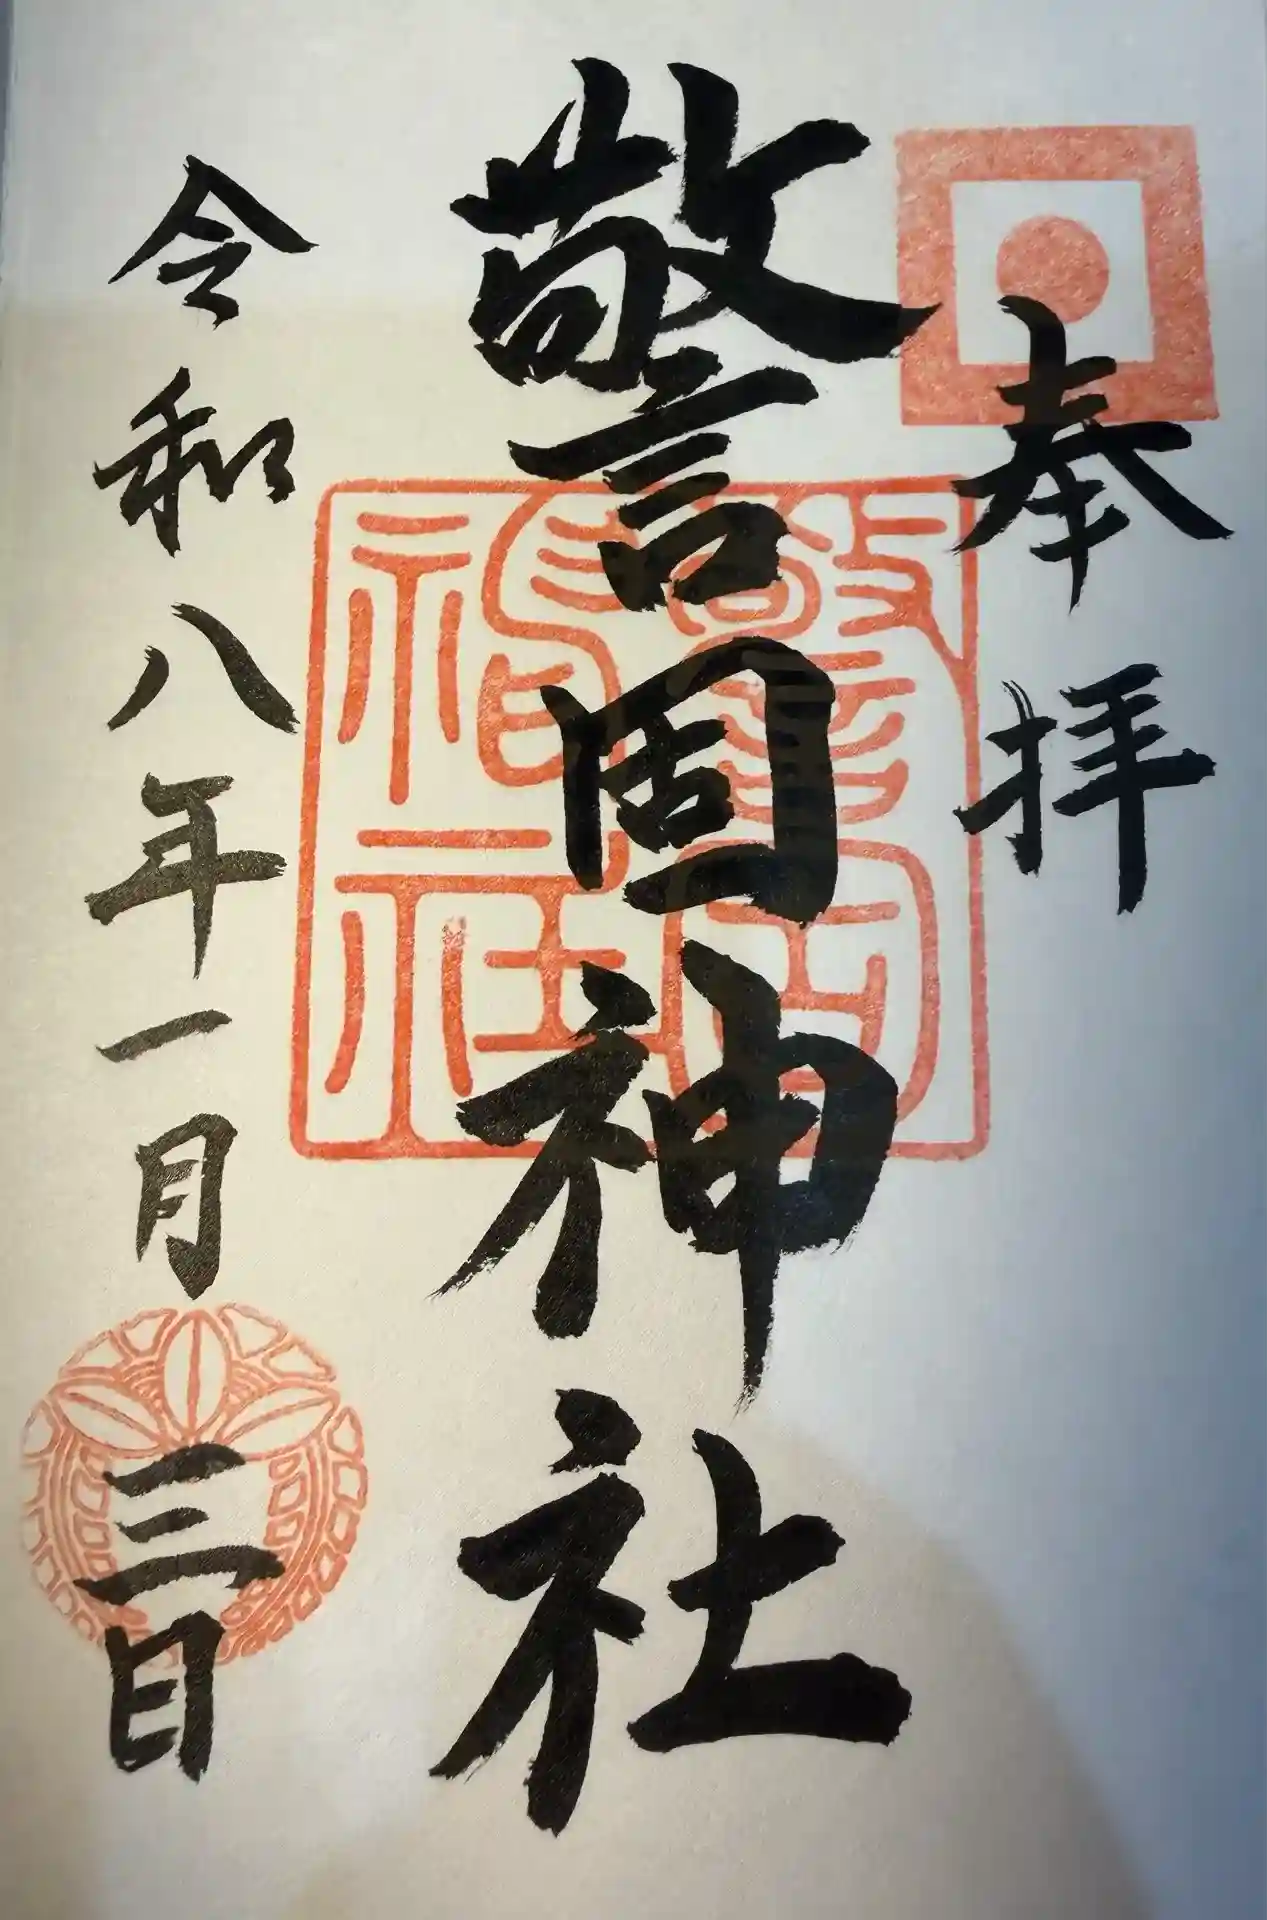 奉拝
警固神社
令和八年一月三日
警固
神社